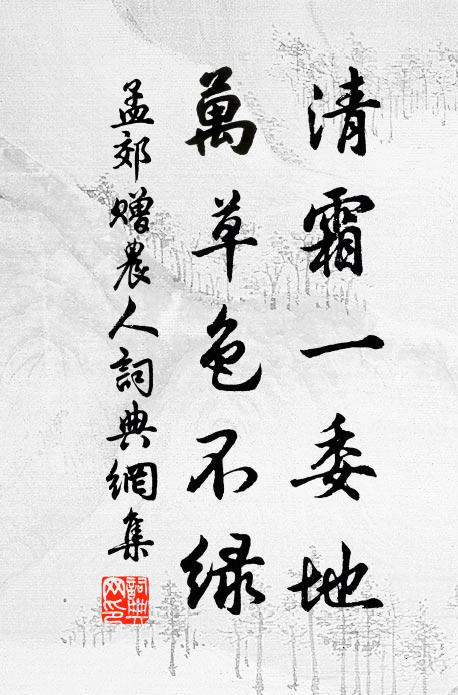 清霜一委地
萬草色不緑
孟郊贈農人詞典網集
詞典
网印